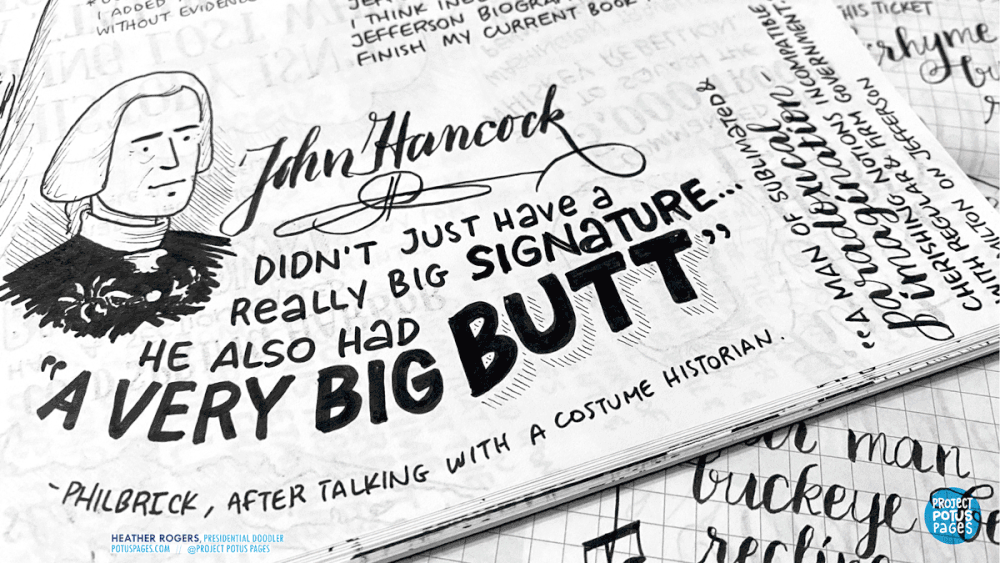 I ADDED
WITHOUT EVIDENCE
I THINK
JEFFERSON
FINISH MY CURRENT BOOK
John Hancock
DIDN'T JUST HAVE A
REALLY BIG SIGNATURE...
HE ALSO HAD
"A VERY BIG BUTT"
- PHILBRICK, AFTER TALKING WITH A COSTUME HISTORIAN.
"A MAN OF SUBLIMATED &
Paradoxical
imagination -
CHERISHING NOTIONS INCOMPATIBLE
WITH REGULAR & FIRM GOVERNMENT."
ON JEFFERSON
THIS TICKET
rhyme
man
buckeye
HEATHER ROGERS, PRESIDENTIAL DOODLER
POTUSPAGES.COM // @PROJECT POTUS PAGES
PROJECT
POTUS
PAGES